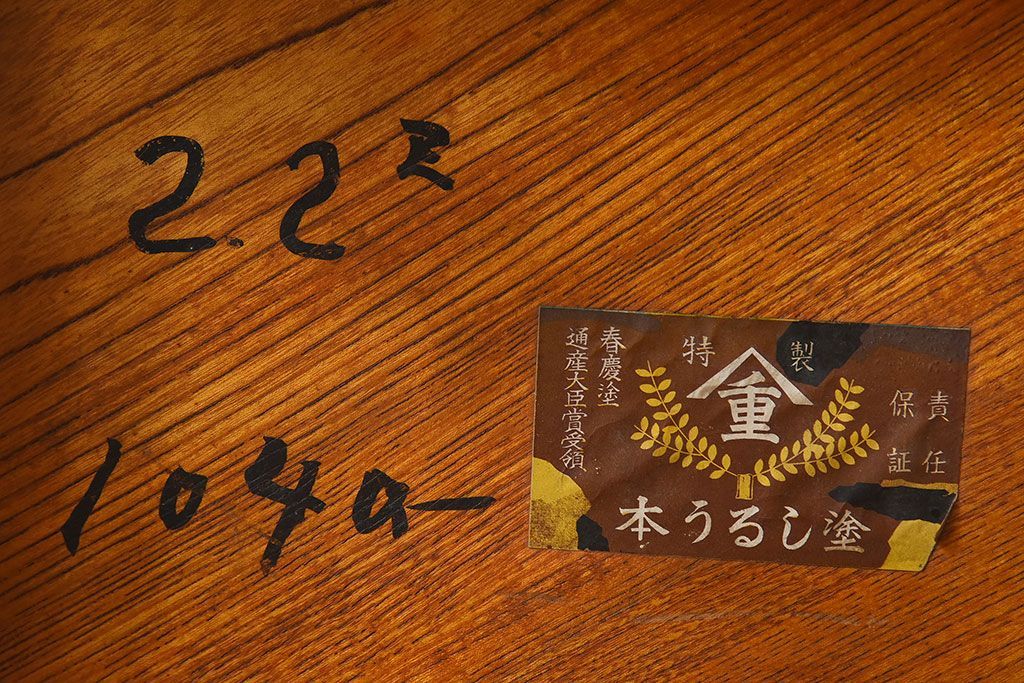 2.2尺
春慶塗
通産大臣賞受領
特製
重
責任
保証
本うるし塗